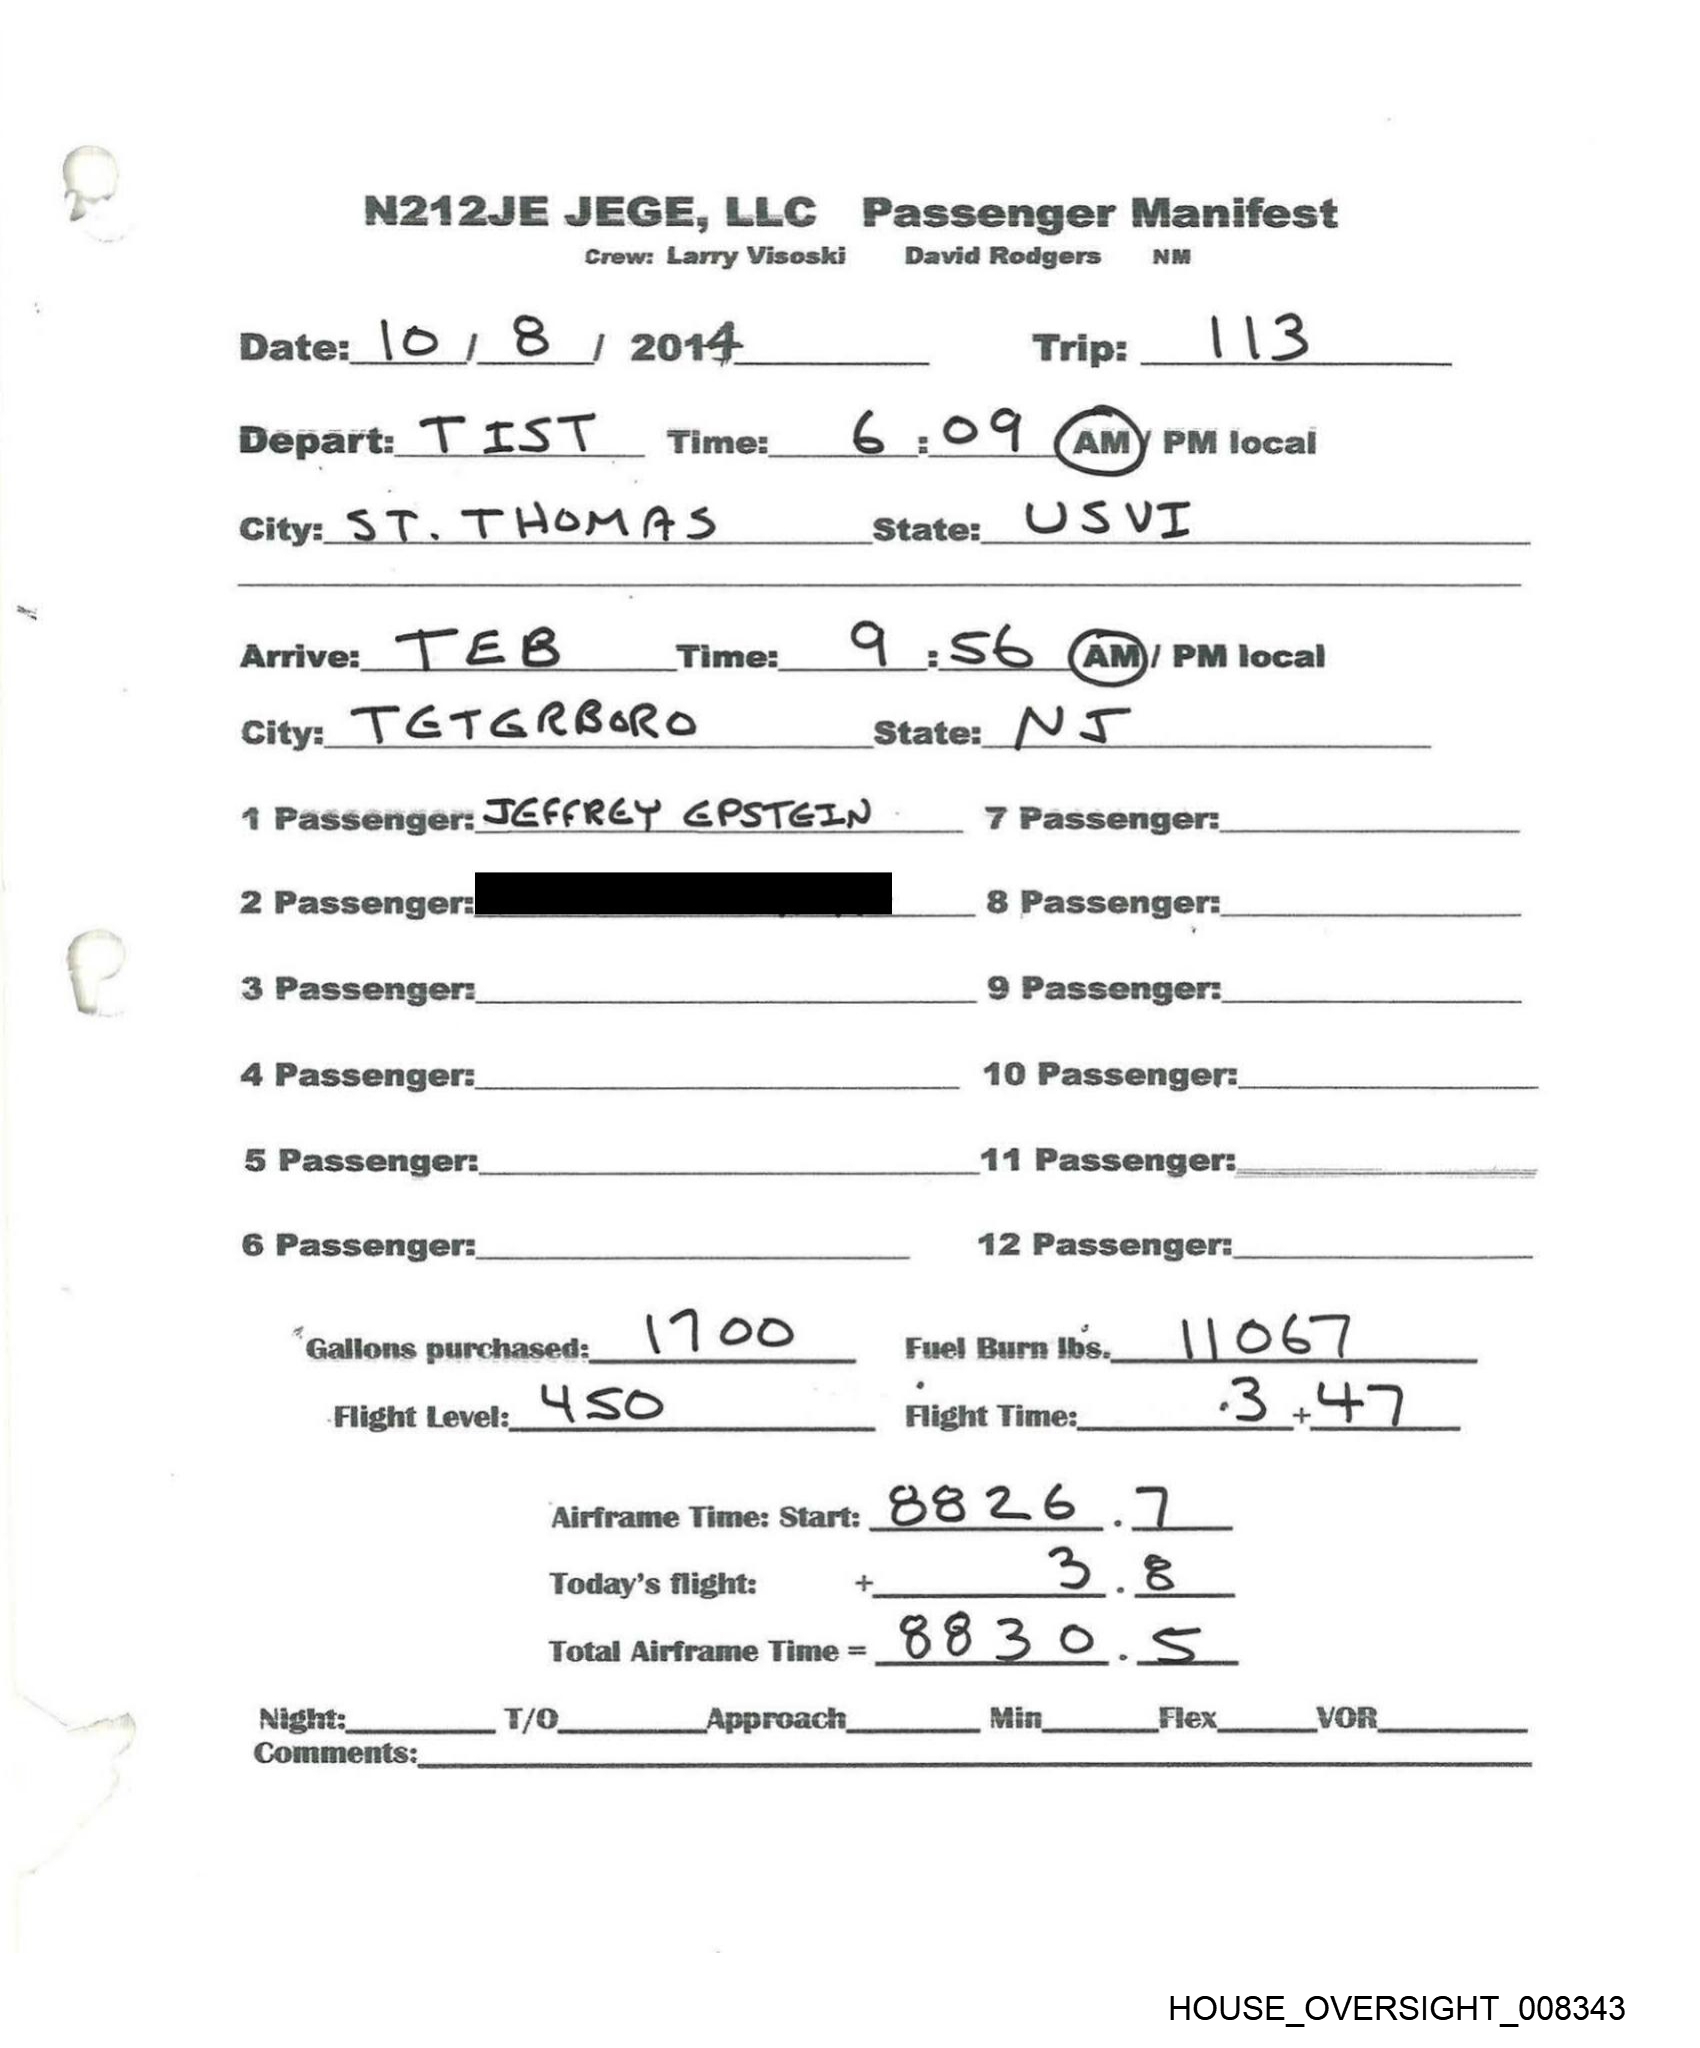 N212JE JEGE, LLC Passenger Manifest
Crew: Larry Visoski David Rodgers NM
Date: 10 / 8 / 2014 Trip: 113
Depart: TIST Time: 6 : 09 AM / PM local
City: ST. THOMAS State: USVI
Arrive: TEB Time: 9 : 56 AM / PM local
City: TETERBORO State: NJ
1 Passenger: JEFFREY EPSTEIN 7 Passenger:
2 Passenger: 8 Passenger:
3 Passenger: 9 Passenger:
4 Passenger: 10 Passenger:
5 Passenger: 11 Passenger:
6 Passenger: 12 Passenger:
Gallons purchased: 1700 Fuel Burn lbs. 11067
Flight Level: 450 Flight Time: 3 + 47
Airframe Time: Start: 8826 . 7
Today's flight: + 3 . 8
Total Airframe Time = 8830 . 5
Night: T/O Approach Min Flex VOR
Comments:
HOUSE_OVERSIGHT_008343